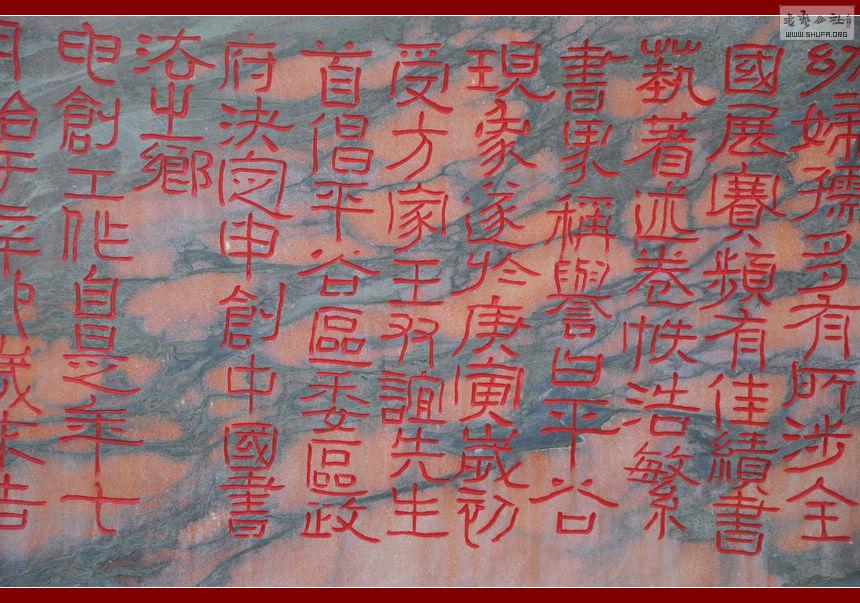 幼婦孺多有所涉全
國展賽頻有佳績書
藝著述卷帙浩繁
書界稱譽曰平谷
現象遂於庚寅歲初
受方家王友誼先生
首倡平谷區委區政
府決定申創中國書
法之鄉
申創工作自是年七
月始于辛卯歲末告
書藝公社
WWW.SHUFA.ORG